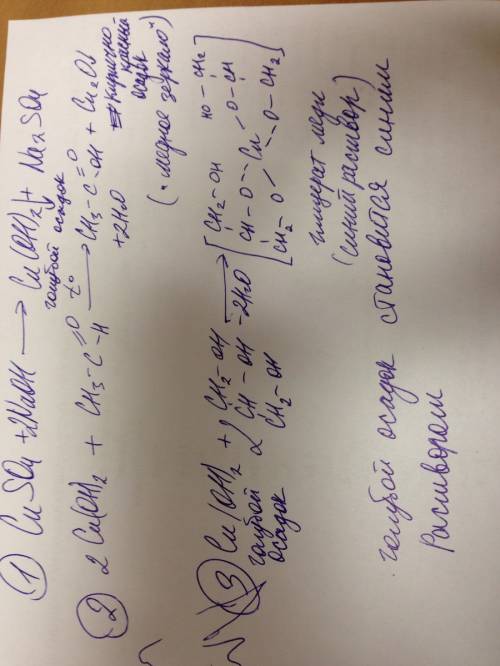 ① CuSO₄ + 2NaOH ⟶ Cu(OH)₂↓ + Na₂SO₄
голубой осадок
② 2Cu(OH)₂ + CH₃–C=O –H ⟶ t° CH₃–C=O –OH + Cu₂O↓
+2H₂O
кирпично-
красный
осадок
("медное зеркало")
③ Cu(OH)₂ + 2 CH₂–OH CH–OH CH₂–OH ⟶ –2H₂O [CH₂–OH CH–O CH₂–O Cu HO–CH₂ O–CH O–CH₂]
голубой
осадок
глицерат меди
(синий раствор)
голубой осадок становится синим
раствором